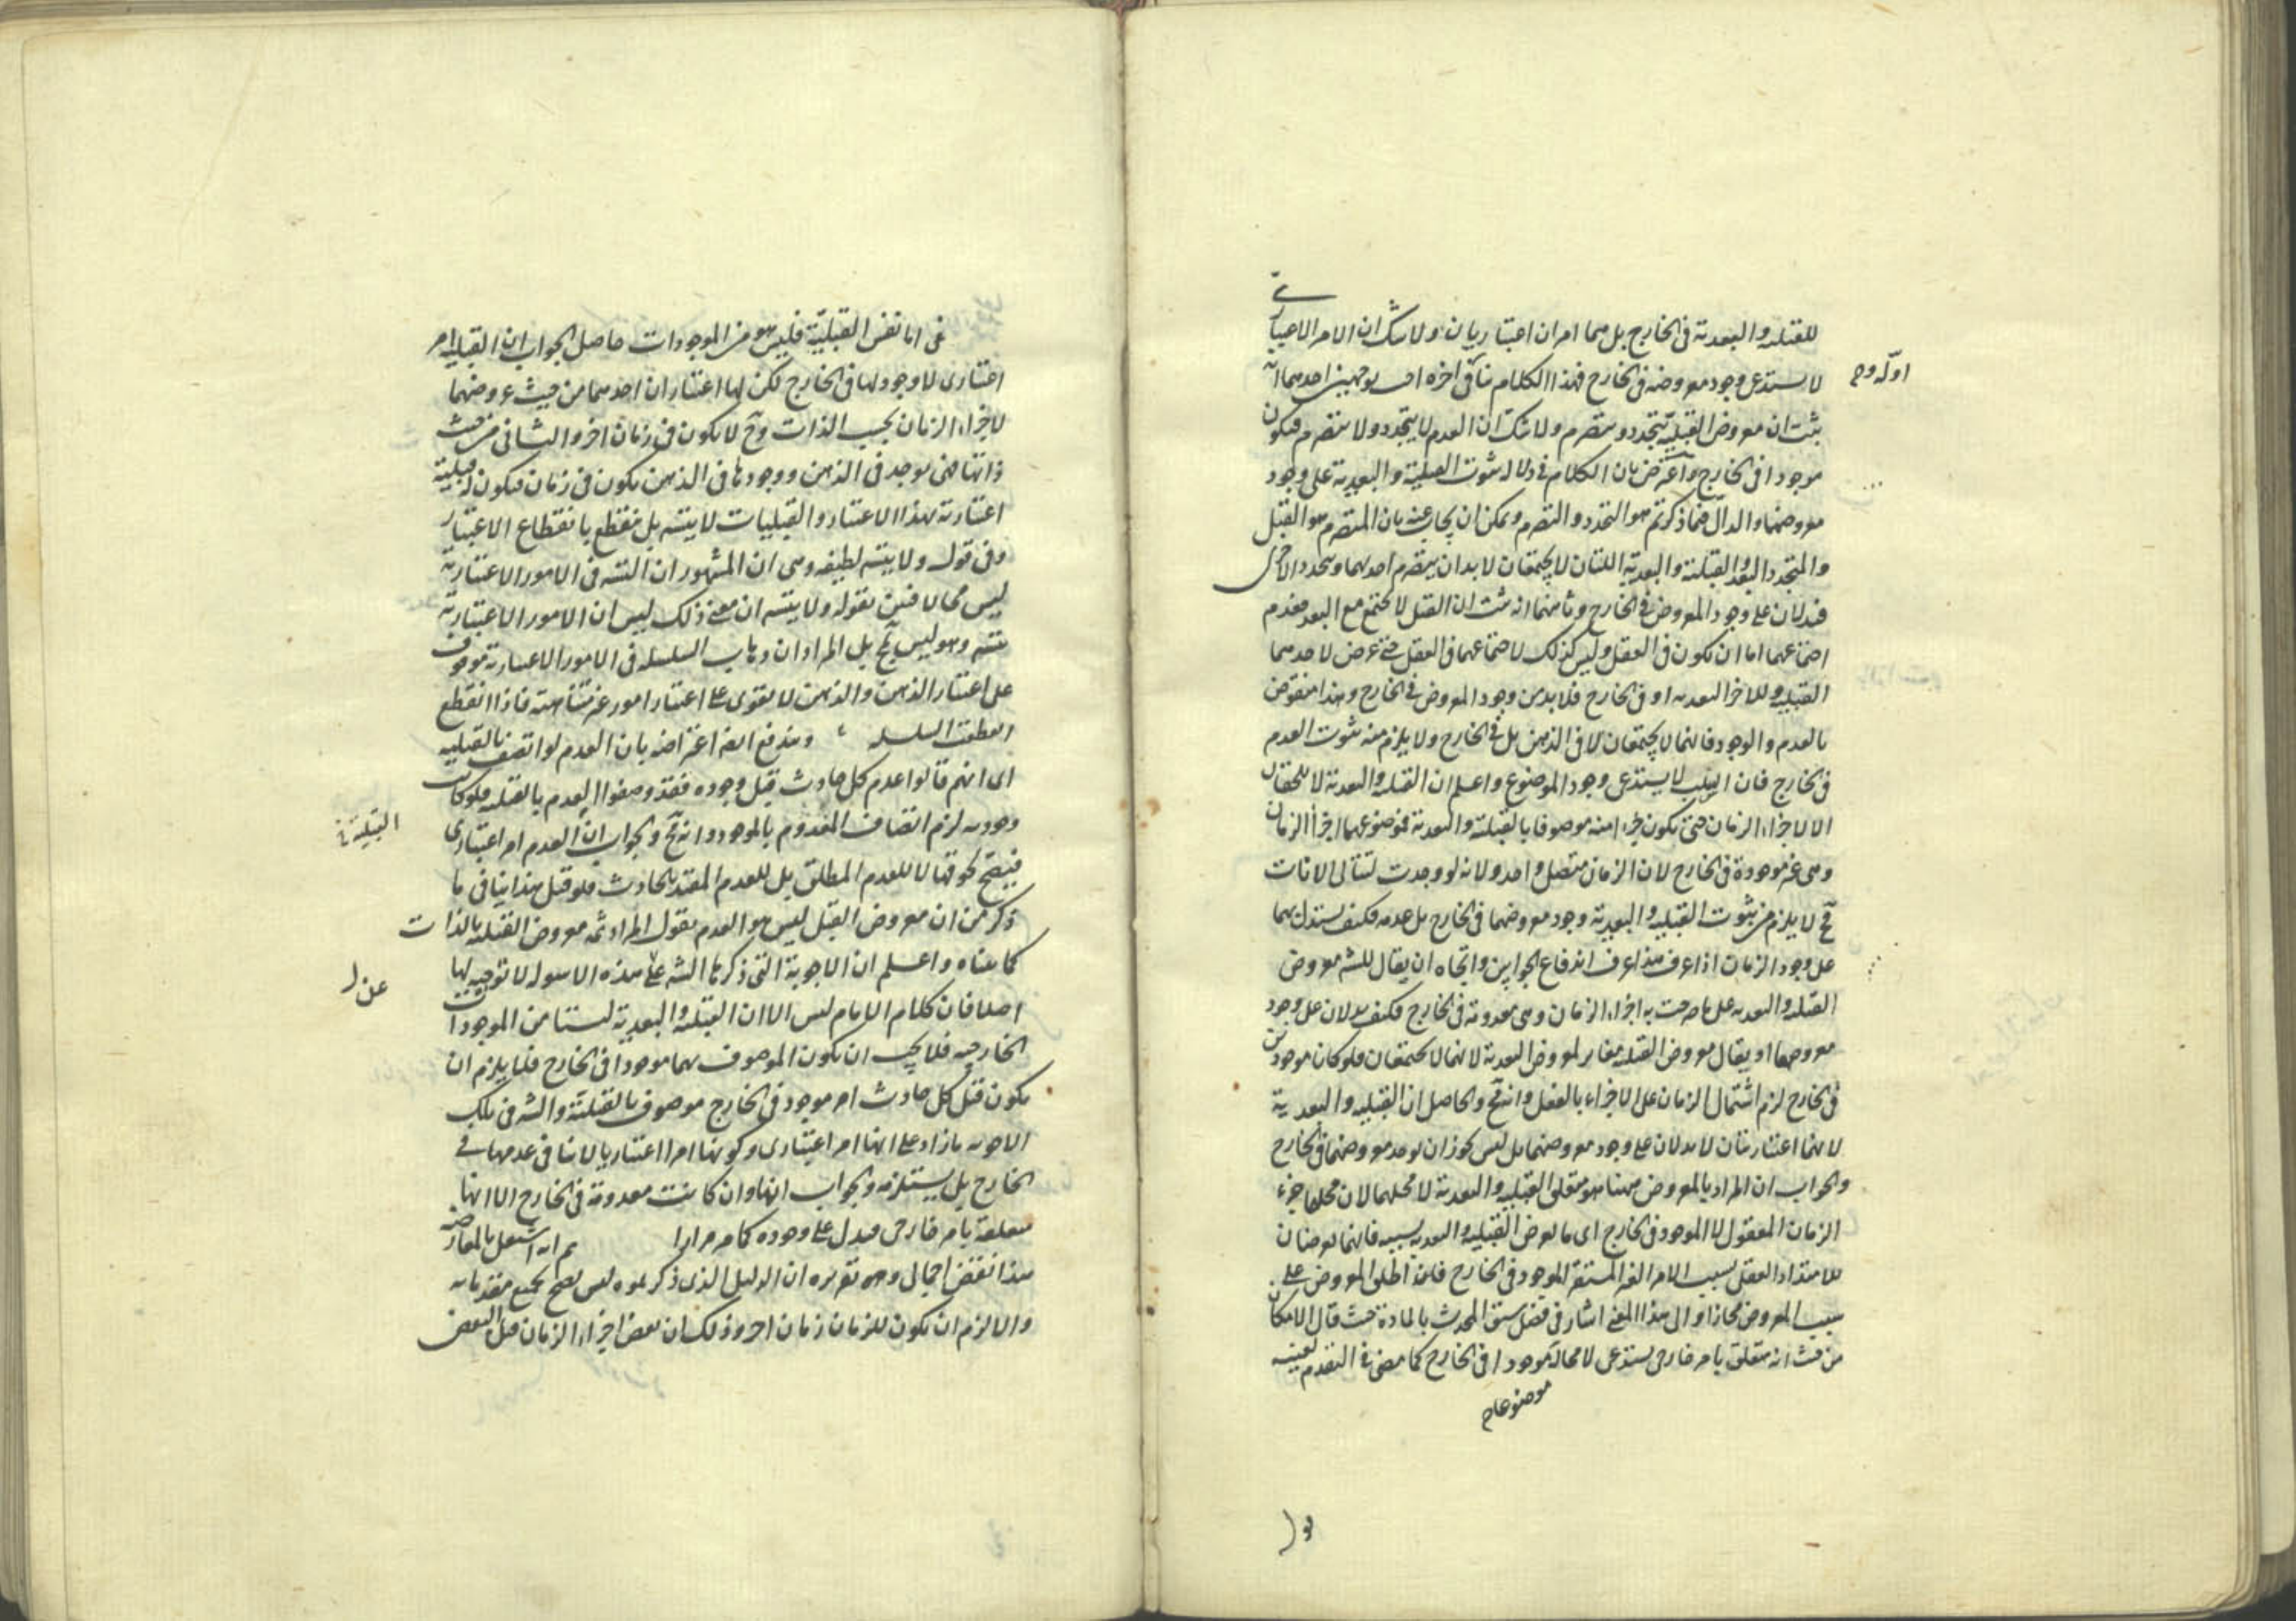 للقبلية والبعدية فى الخارج بل هما امران اعتباريان ولا شك ان الامر الاعتبارى
لا يستدعى وجود معروضه فى الخارج فهذا الكلام ينافى اخره اوله وجـ بوجهين احدهما انه
ثبت ان معروض القبلية يتجدد ويتصرم ولا شك ان العدم لا يتجدد ولا يتصرم فيكون
موجودا فى الخارج واعترض بان الكلام فى دلالة ثبوت القبلية والبعدية على وجود
معروضهما والدال مما ذكرتم هو التجدد والتصرم ويمكن ان يجاب عنه بان المتصرم هو القبل
والمتجدد البعد والقبلية والبعدية اللتان لا يجتمعان لا بد ان يتصرم احدهما ويتجدد الاخرى
فيدلان على وجود المعروض فى الخارج وثانيهما انه ثبت ان القبل لا يجتمع مع البعد فعدم
اجتماعهما اما ان يكون فى العقل وليس كذلك لاجتماعهما فى العقل حتى عرض لاحدهما
القبلية وللاخر البعدية او فى الخارج فلا بد من وجود المعروض فى الخارج وهذا منقوض
بالعدم والوجود فانهما لا يجتمعان لا فى الذهن بل فى الخارج ولا يلزم منه ثبوت العدم
فى الخارج فان السلب لا يستدعى وجود الموضوع واعلم ان القبلية والبعدية لا تلحقان
الا لاجزاء الزمان حتى يكون جزء منه موصوفا بالقبلية والبعدية فموضوعهما اجزاء الزمان
وهى غير موجودة فى الخارج لان الزمان متصل واحد ولانه لو وجدت لتتالى الانات
فح لا يلزم من ثبوت القبلية والبعدية وجود معروضهما فى الخارج بل عدمه فكيف يستدل بهما
على وجود الزمان اذا عرف هذا عرف اندفاع الجوابين واتجاه ان يقال للشه معروض
القبلية والبعدية على ما صرحت به اجزاء الزمان وهى معدومة فى الخارج فكيف يدلان على وجود
معروضهما او يقال معروض القبلية مغاير لمعروض البعدية لانهما لا يجتمعان فلو كان موجودين
فى الخارج لزم اشتمال الزمان على الاجزاء بالفعل وانه مح والحاصل ان القبلية والبعدية
لانهما اعتباريتان لا يدلان على وجود معروضهما بل ليس يجوز ان يوجد معروضهما فى الخارج
والجواب ان المراد بالمعروض ههنا هو متعلق القبلية والبعدية لا محلهما لان محلهما جزء
الزمان المعقول لا الموجود فى الخارج اى ما يعرض القبلية والبعدية بسببه فانهما يعرضان
للامتداد العقلى بسبب الامر الغير المستقر الموجود فى الخارج فلهذا اطلق المعروض على
سبب المعروض مجازا والى هذا المعنى اشار فى فصل سبق المحدث بالمادة حيث قال الامكان
من حيث انه متعلق بامر خارجى يستدعى لا محالة موجودا فى الخارج كما مضى فى التقدم بعينه
موضوعا
فى اما نفس القبلية فليس هو من الموجودات حاصل الجواب ان القبلية امر
اعتبارى لا وجود لها فى الخارج لكن لها اعتباران احدهما من حيث عروضهما
لاجزاء الزمان بحسب الذات وح لا يكون فى زمان اخر والثانى من حيث
ذاتها فهى يوجد فى الذهن ووجودها فى الذهن يكون فى زمان فيكون له قبلية
اعتبارية بهذا الاعتبار والقبليات لا يتسه بل ينقطع بانقطاع الاعتبار
وفى قوله ولا يتسه لطيفة وهى ان المشهور ان التسه فى الامور الاعتبارية
ليس محالا فبين بقوله ولا يتسه ان معنى ذلك ليس ان الامور الاعتبارية
يتسه وهو ليس بمح بل المراد ان ذهاب السلسلة فى الامور الاعتبارية موقوف
على اعتبار الذهن والذهن لا يقوى على اعتبار امور غير متناهية فاذا انقطع
انقطعت السلسلة ويندفع ايضا اعتراضه بان العدم لو اتصف بالقبلية
اى انهم قالوا عدم كل حادث قبل وجوده فقد وصفوا العدم بالقبلية فلو كانت القبلية
وجودية لزم اتصاف المعدوم بالموجود وانه مح والجواب ان العدم امر اعتبارى
فيصح لحوقها لا للعدم المطلق بل للعدم المقيد بالحادث فلو قيل هذا ينافى ما
ذكر من ان معروض القبل ليس هو العدم يقول المراد ثمه معروض القبلية بالذات
كما بيناه واعلم ان الاجوبة التى ذكرها الشه عن هذه الاسولة لا توجيه لها
اصلا فان كلام الامام ليس الا ان القبلية والبعدية ليستا من الموجودات
الخارجية فلا يجب ان يكون الموصوف بهما موجودا فى الخارج فلا يلزم ان
يكون قبل كل حادث امر موجود فى الخارج موصوف بالقبلية والشه فى تلك
الاجوبة ما زاد على انها امر اعتبارى وكونها امرا اعتباريا لا ينافى عدمها فى
الخارج بل يستلزمه والجواب انها وان كانت معدومة فى الخارج الا انها
متعلقة بامر خارجى فيدل على وجوده كما مر مرارا ثم انه اشتغل بالمعارضة
هذا نقض اجمالى وجه تقريره ان الدليل الذى ذكرتموه ليس يصح بجميع مقدماته
والا لزم ان يكون للزمان زمان اخر وذلك ان بعض اجزاء الزمان قبل البعض